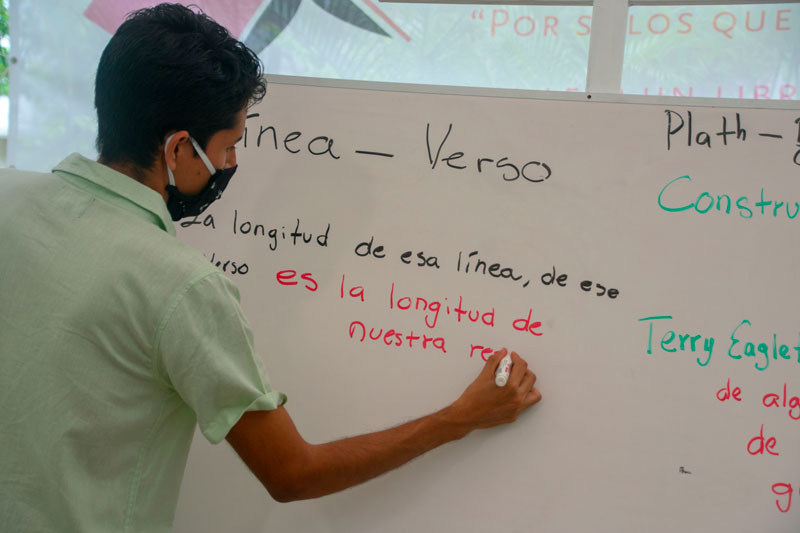 "POR S LOS QUE
UN LIBR
ínea — Verso
La longitud de esa línea, de ese
verso es la longitud de
nuestra re
Plath —
Constru
Terry Eaglet
de alg
de
g